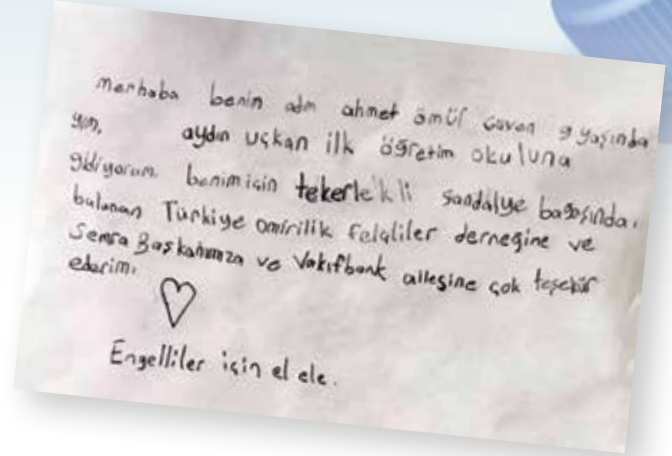 merhaba benim adım ahmet ömür Güven 9 yaşında
yım, aydın uçkan ilk öğretim okuluna
gidiyorum. benim için tekerlekli sandalye bağışında.
bulunan Türkiye omirilik felçliler derneğine ve
Semra Başkanımıza ve Vakıfbank aillesine çok teşekür
ederim.
Engelliler için el ele.